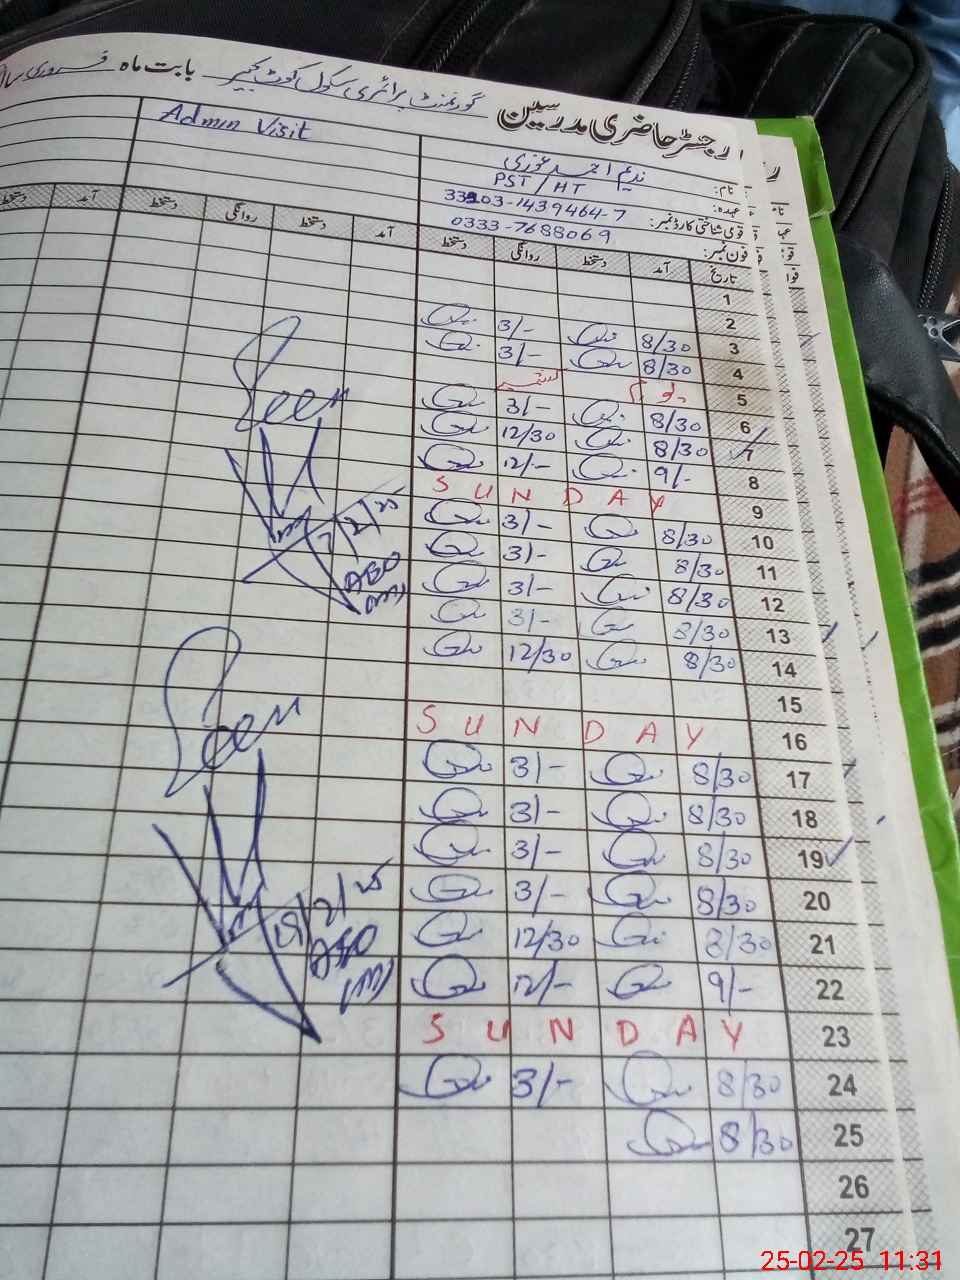 رجسٹر حاضری مدرسین گورنمنٹ پرائمری سکول کوٹ بابت ماہ فروری
نام: ندیم احمد Admin Visit
عہدہ: PST/HT
قومی شناختی کارڈ نمبر: 33203-1439464-7
فون نمبر: 0333-7688069
تاریخ آمد دستخط روانگی دستخط آمد دستخط روانگی دستخط آمد دستخط
1
2
3 8/30 3/-
4 8/30 3/-
5
6 8/30 3/-
7 8/30 12/30
8 9/- 12/-
9 SUNDAY
10 8/30 3/-
11 8/30 3/-
12 8/30 3/-
13 8/30 3/-
14 8/30 12/30
15
16 SUNDAY
17 8/30 3/-
18 8/30 3/-
19 8/30 3/-
20 8/30 3/-
21 8/30 12/30
22 9/- 12/-
23 SUNDAY
24 8/30 3/-
25 8/30
26
27
Seen
7/2/25
AEO
(M)
Seen
19/2/25
AEO
(M)
25-02-25 11:31